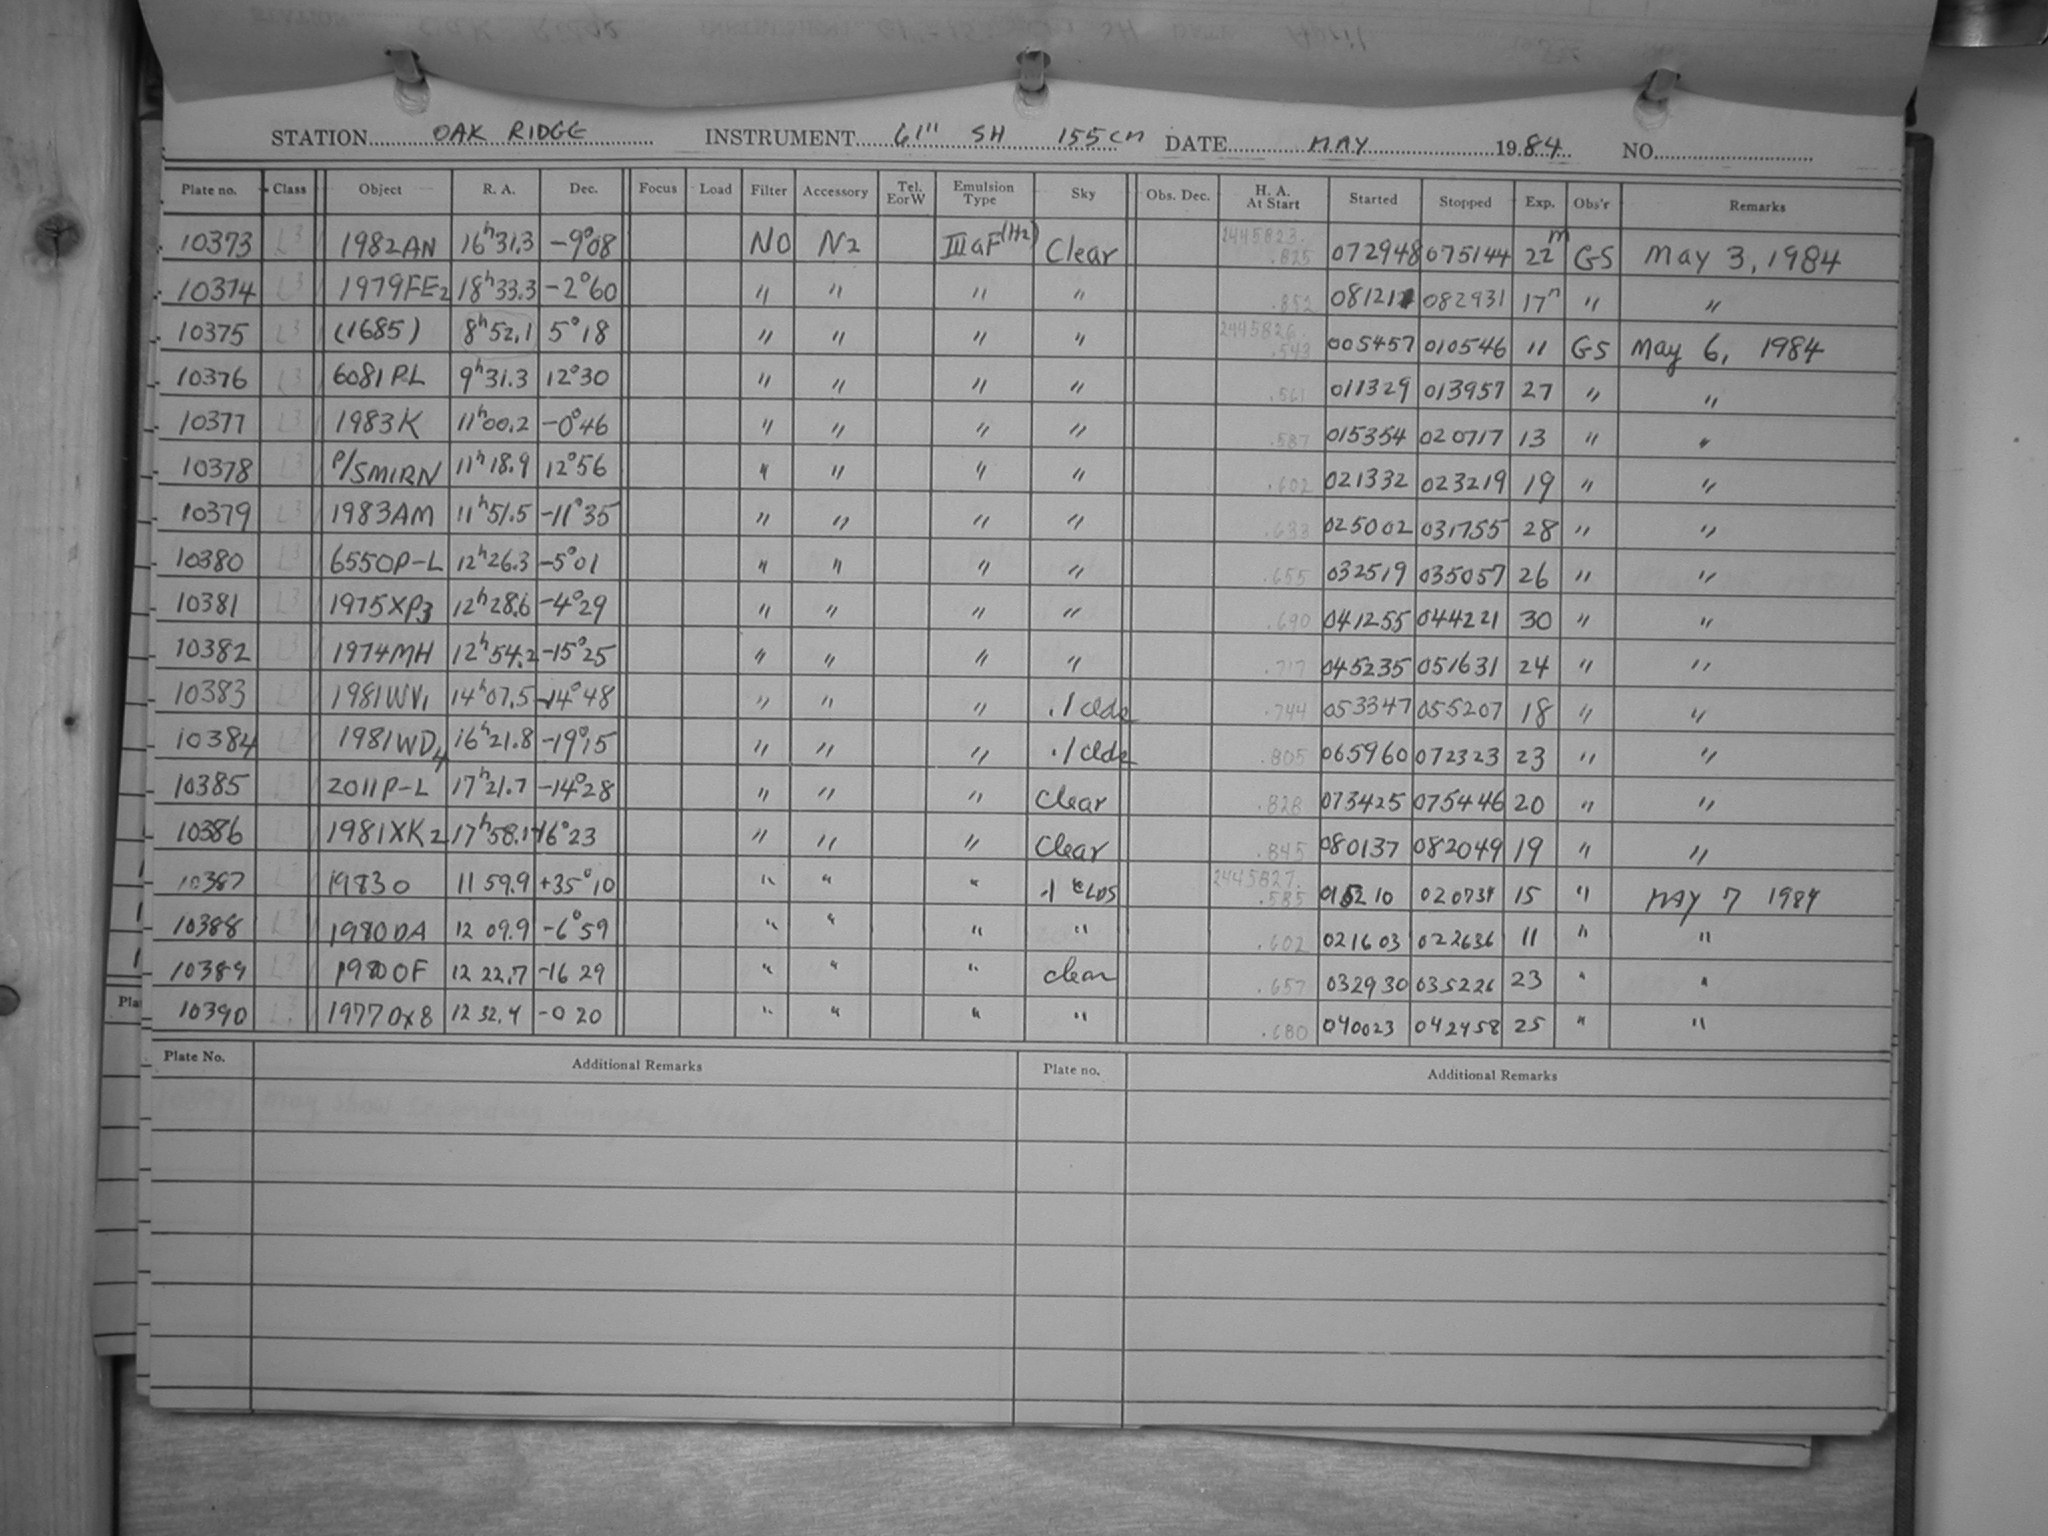 STATION OAK RIDGE INSTRUMENT 61" SH 155 cm DATE MAY 1984 NO.
Plate no. Class Object R. A. Dec. Focus Load Filter Accessory Tel. E or W Emulsion Type Sky Obs. Dec. H. A. At Start Started Stopped Exp. Obs'r Remarks
10373 L3 1982AN 16h31.3 -9°08 NO N2 IIIaF(H2) Clear 2445823. .825 072948 075144 22m GS May 3, 1984
10374 L3 1979FE2 18h33.3 -2°60 " " " " .852 08121 082931 17m " "
10375 L3 (1685) 8h52.1 5°18 " " " " 2445826. .543 005457 010546 11 GS May 6, 1984
10376 L3 6081 P-L 9h31.3 12°30 " " " " .561 011329 013957 27 " "
10377 L3 1983K 11h00.2 -0°46 " " " " .587 015354 020717 13 " "
10378 L3 P/SMIRN 11h18.9 12°56 " " " " .602 021332 023219 19 " "
10379 L3 1983AM 11h51.5 -11°35 " " " " .633 025002 031755 28 " "
10380 L3 6550P-L 12h26.3 -5°01 " " " " .655 032519 035057 26 " "
10381 L3 1975XP3 12h28.6 -4°29 " " " " .690 041255 044221 30 " "
10382 L3 1974MH 12h54.2 -15°25 " " " " .717 045235 051631 24 " "
10383 L3 1981WV1 14h07.5 -14°48 " " " .1 clds .744 053347 055207 18 " "
10384 L3 1981WD4 16h21.8 -19°15 " " " .1 clds .805 065960 072323 23 " "
10385 L3 2011P-L 17h21.7 -14°28 " " " Clear .828 073425 075446 20 " "
10386 L3 1981XK2 17h58.1 -16°23 " " " Clear .845 080137 082049 19 " "
10387 L3 1983O 11 59.9 +35°10 " " " .1 CLDS 2445827. .585 015210 020734 15 " MAY 7 1984
10388 L3 1980DA 12 09.9 -6°59 " " " " .602 021603 022636 11 " "
10389 L3 1980OF 12 22.7 -16 29 " " " clear .657 032930 035226 23 " "
10390 L3 1977OX8 12 32.4 -0 20 " " " " .680 040023 042458 25 " "
Plate No. Additional Remarks Plate no. Additional Remarks